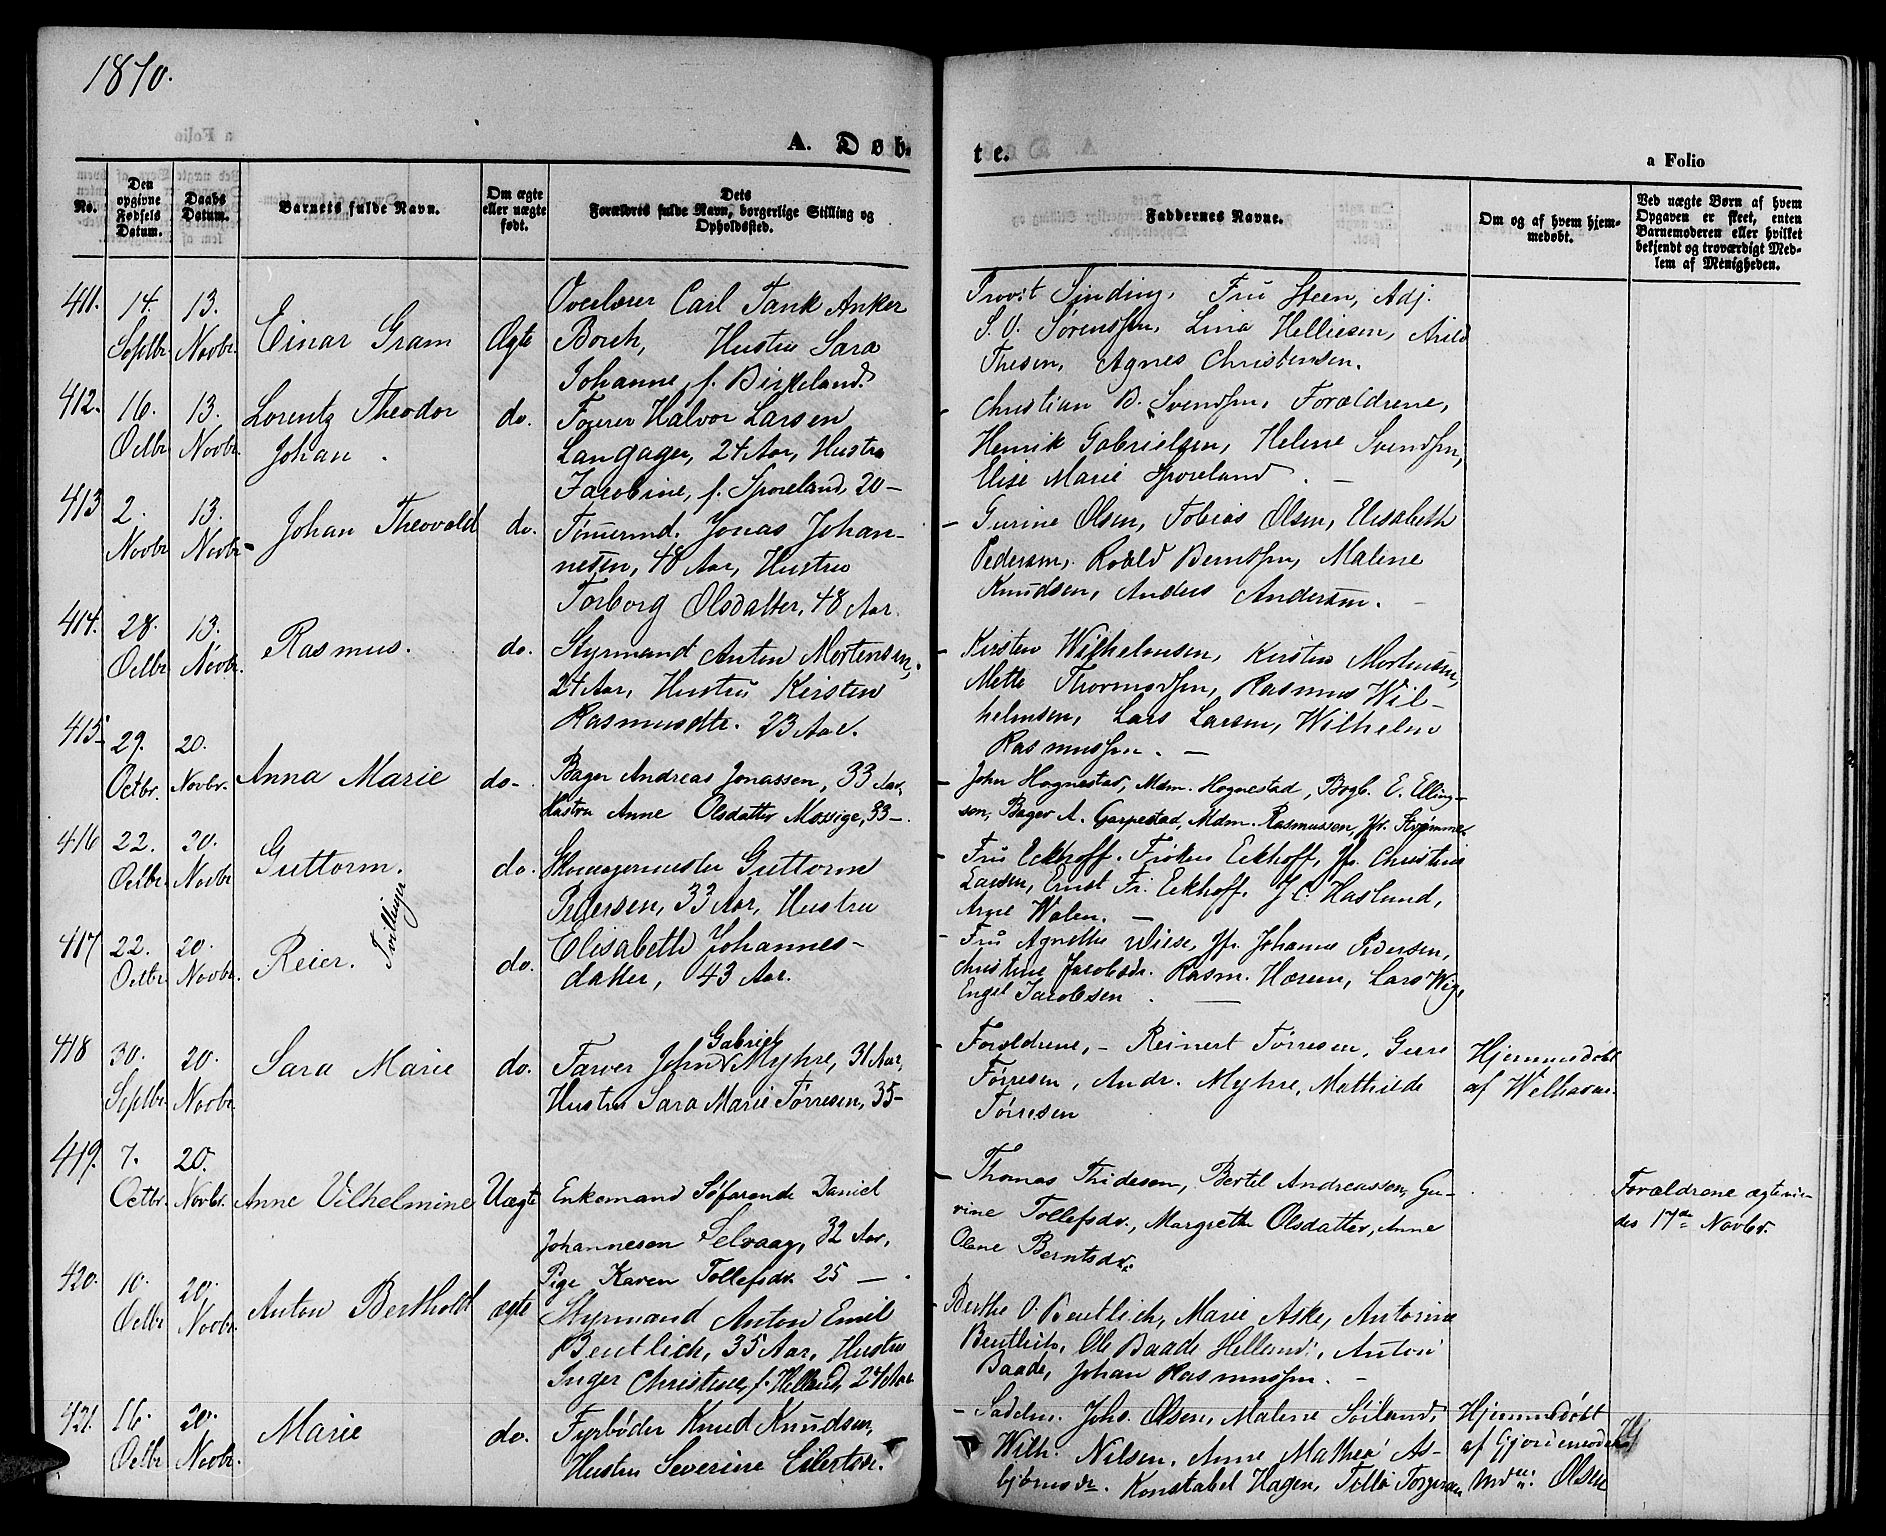 1870.
A. Døb-
te.
a Folio
No.
Den opgivne Fødsels Datum.
Daabs Datum.
Barnets fulde Navn.
Om ægte eller uægte født.
Dets Forældres fulde Navn, borgerlige Stilling og Opholdssted.
Faddernes Navne.
Om og af hvem hjemmedøbt.
Ved uægte Børn af hvem Opgaven er skeet, enten Barnemoderen eller hvilket bekjendt og troværdigt Medlem af Menigheden.
411. 14. Septbr. 13. Novbr. Einar Gram Ægte
Overlærer Carl Tank Anker
Borch, Hustru Sara
Johanne, f. Birkeland.
Provst Sinding, Fru Steen, Adj.
S. O. Sørenssen, Lina Helliesen, Arild
Thesen, Agnes Christensen.
412. 16. Octbr. 13. Novbr. Lorentz Theodor
Johan. do.
Halvor Larsen
Langager, 24 Aar, Hustru
Jacobine, f. Sporeland, 20 –
Christian B. Svendsen, Forældrene,
Henrik Gabrielsen, Helene Svendsen,
Elise Marie Sporeland. –
413 2. Novbr. 13. Novbr. Johan Theovald do.
Tømmermd. Jonas Johan-
nesen, 48 Aar, Hustru
Torborg Olsdatter, 48 Aar.
– Gurine Olsen, Tobias Olsen, Elisabeth
Pedersen, Roald Berntsen, Malene
Knudsen, Anders Andersen. –
414. 28. Octbr. 13. Novbr. Rasmus. do.
Styrmand Anton Mortensen,
24 Aar, Hustru Kirsten
Rasmusdtr. 23 Aar.
– Kirsten Wilhelmsen, Kirsten Mortensen,
Mette Thormodsen, Rasmus Wil-
helmsen, Lars Larsen, Wilhelm
Rasmussen. –
415 29. Octbr. 20. Novbr. Anna Marie do –
Bager Andreas Jonassen, 33 Aar,
Hustru Anne Olsdatter Mossige, 33 –
– John Hognestad, Mdm. Hognestad, Bogb. E. Elling-
sen, Bager A. Garpestad, Mdm. Rasmussen, Jfr. Strømme.
416 22. Octbr. 20. Novbr. Guttorm. do.
Tvillinger
Skomagermester Guttorm
Pedersen, 33 Aar, Hustru
– Fru Eckhoff, Frøken Eckhoff, Jfr. Christine
Larsen, Ernst Fr. Eckhoff, J. C. Haslund,
Arne Walen. –
417 22. Octbr. 20. Novbr. Reier. do.
Elisabeth Johannes-
datter, 43 Aar.
– Fru Agnethe Wiese, Jfr. Johanne Pedersen,
Christine Jacobsdr. Rasm. Hærem, Lars Wig,
Engel Jacobsen. –
418 30. Septbr. 20. Novbr. Sara Marie do.
Gabriel
Farver John Myhre, 31 Aar,
Hustru Sara Marie Tørresen, 35 –
– Forældrene, – Reinert Tørresen,
Tørresen, Andr. Myhre, Mathilde
Tørresen
Hjemmedøbt
af Welhaven.
419. 7. Octbr. 20. Novbr. Anne Vilhelmine Uægte
Enkemand Søfarende Daniel
Johannesen Selvaag, 32 Aar,
Pige Karen Tollefsdr. 25 –.
– Thomas Thidesen, Bertel Andreassen, Gu-
rine Tollefsdr., Margrethe Olsdatter, Anne
Olene Berntsdr.
Forældrene ægtevie-
des 17de Novbr.
420. 10. Octbr. 20. Novbr. Anton Berthold ægte
Styrmand Anton Emil
Beutlich, 35 Aar, Hustru
Inger Christine, f. Helland, 24 Aar
– Berthe O. Beutlich, Marie Aske, Antonine
Beutlich, Ole Baade Helland, Anton
Baade, Johan Rasmussen. –
421. 16. Octbr. 20. Novbr. Marie do.
Fyrbøder Knud Knudsen,
Hustru Severine Eilertsdr.
– Sadelm. Johs. Olsen, Malene Søiland,
Wilh. Nilsen, Anne Mathea As-
bjørnsdr. Konstabel Hagen, Tille Torgersen
Hjemmedøbt
af Gjordemoder
Olsen